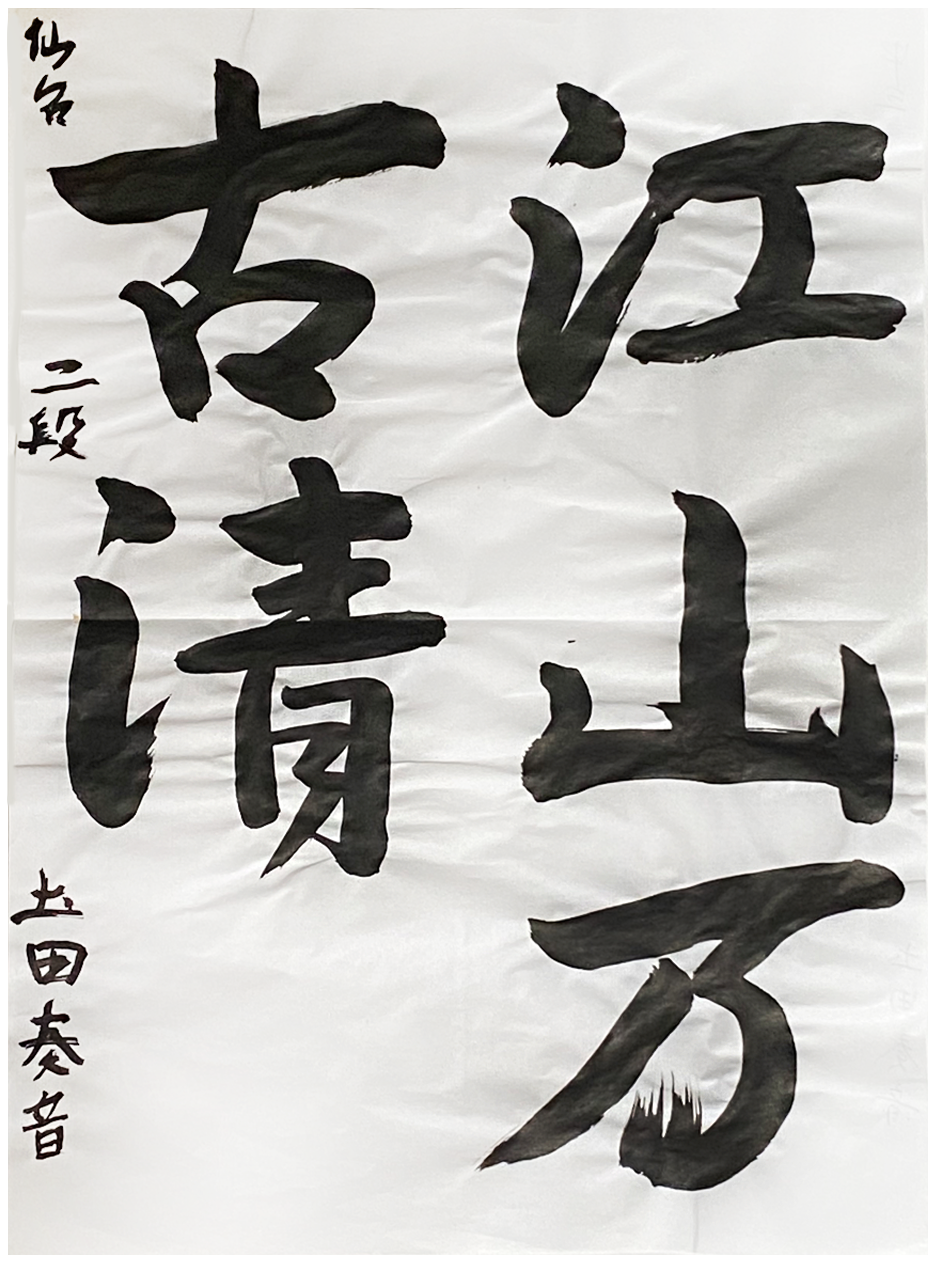 江山万
古清
仙台 二段 土田奏音